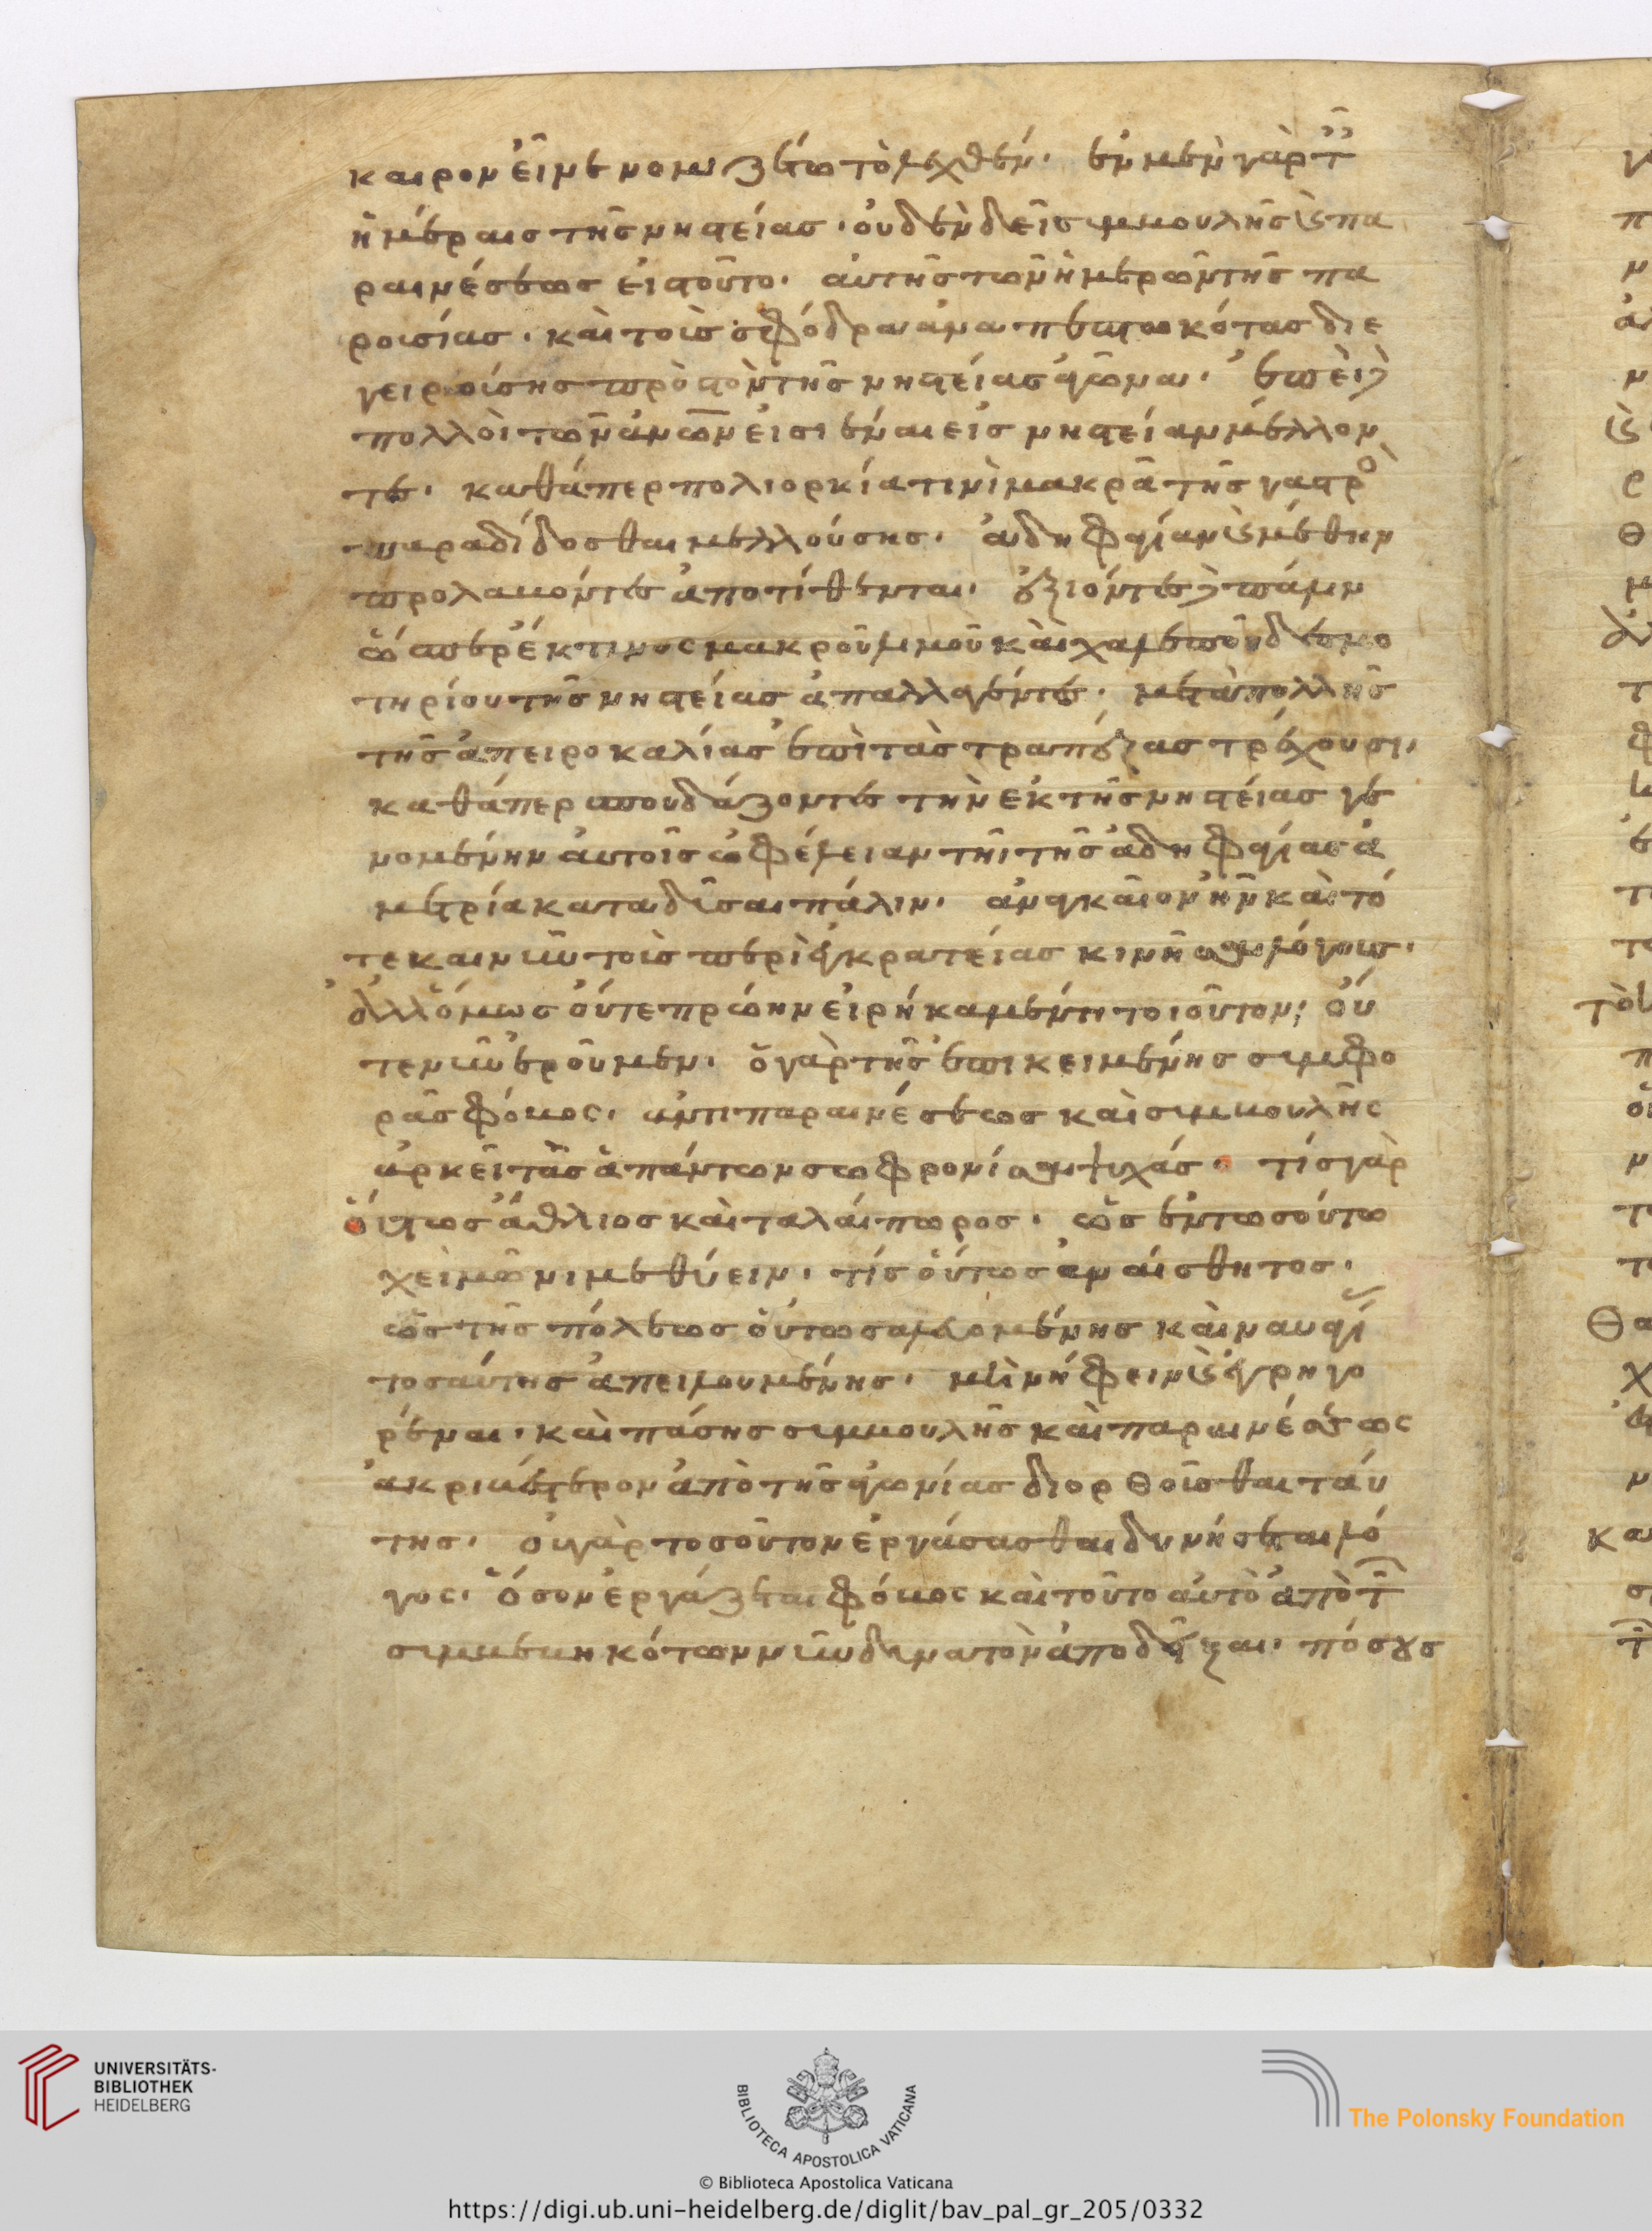 καιρον εἶναι νομίζω τὸ λεχθέν· ἐν μὲν γὰρ τ
ἡμέραις τῆς νηστείας· οὐδὲν δεῖ συμβουλῆς καὶ πα
ραινέσεως εἰς τοῦτο· αὐτῆς τῶν ἡμερῶν τῆς πα
ρουσίας· καὶ τοὺς σφόδρα ἀναπεπτωκότας διε
γειρούσης πρὸς τὸν τῆς νηστείας ἀγῶνα· ἐπεὶ δὲ
πολλοὶ τῶν ἀνῶν εἰσιέναι εἰς νηστείαν μέλλον
τες· καθάπερ πολιορκία τινὶ μακρᾶ τῆς γαστρὸ
παραδίδοσθαι μελλούσης· ἀδηφαγίαν καὶ μέθην
προλαβόντες ἀποτίθενται· ἐξιόντες δὲ πάλιν
ὥσπερ ἔκ τινος μακροῦ λιμοῦ καὶ χαλεποῦ δεσμο
τηρίου τῆς νηστείας ἀπαλλαγέντες· μετὰ πολλῆς
τῆς ἀπειροκαλίας ἐπὶ τὰς τραπέζας τρέχουσι·
καθάπερ σπουδάζοντες τὴν ἐκ τῆς νηστείας γε
νομένην αὐτοῖς ὠφέλειαν τῆι τῆς ἀδηφαγίας ἀ
μετρία καταλῦσαι πάλιν· ἀναγκαῖον ἦν καὶ τό
τε καὶ νῦν τοὺς περὶ ἐγκρατείας κινῆσαι λόγους·
ἀλλ' ὅμως οὔτε πρώην εἰρήκαμέν τι τοιοῦτον· οὔ
τε νῦν ἐροῦμεν· ὁ γὰρ τῆς ἐπικειμένης συμφο
ρᾶς φόβος· ἀντὶ παραινέσεως καὶ συμβουλῆς
ἀρκεῖ τὰς ἁπάντων σωφρονίσαι ψυχάς· τίς γὰρ
οὕτως ἄθλιος καὶ ταλαίπωρος· ὡς ἐν τωσούτω
χειμῶνι μεθύειν· τίς οὕτως ἀναίσθητος·
ὡς τῆς πόλεως οὕτω σαλευομένης καὶ ναυαγί
τοσαύτης ἀπειλουμένης· μὴ νήφειν καὶ ἐγρηγο
ρέναι· καὶ πάσης συμβουλῆς καὶ παραινέσεως
ἀκριβέστερον ἀπὸ τῆς ἀγωνίας διορθοῦσθαι ταύ
της· οὐ γὰρ τοσοῦτον ἐργάσασθαι δυνήσεται λό
γος· ὅσον ἐργάζεται φόβος καὶ τοῦτο αὐτὸ ἀπὸ τ
συμβεβηκότων νῦν δυνατὸν ἀποδεῖξαι· πόσους
UNIVERSITÄTS-
BIBLIOTHEK
HEIDELBERG
BIBLIOTECA APOSTOLICA VATICANA
The Polonsky Foundation
© Biblioteca Apostolica Vaticana
https://digi.ub.uni-heidelberg.de/diglit/bav_pal_gr_205/0332